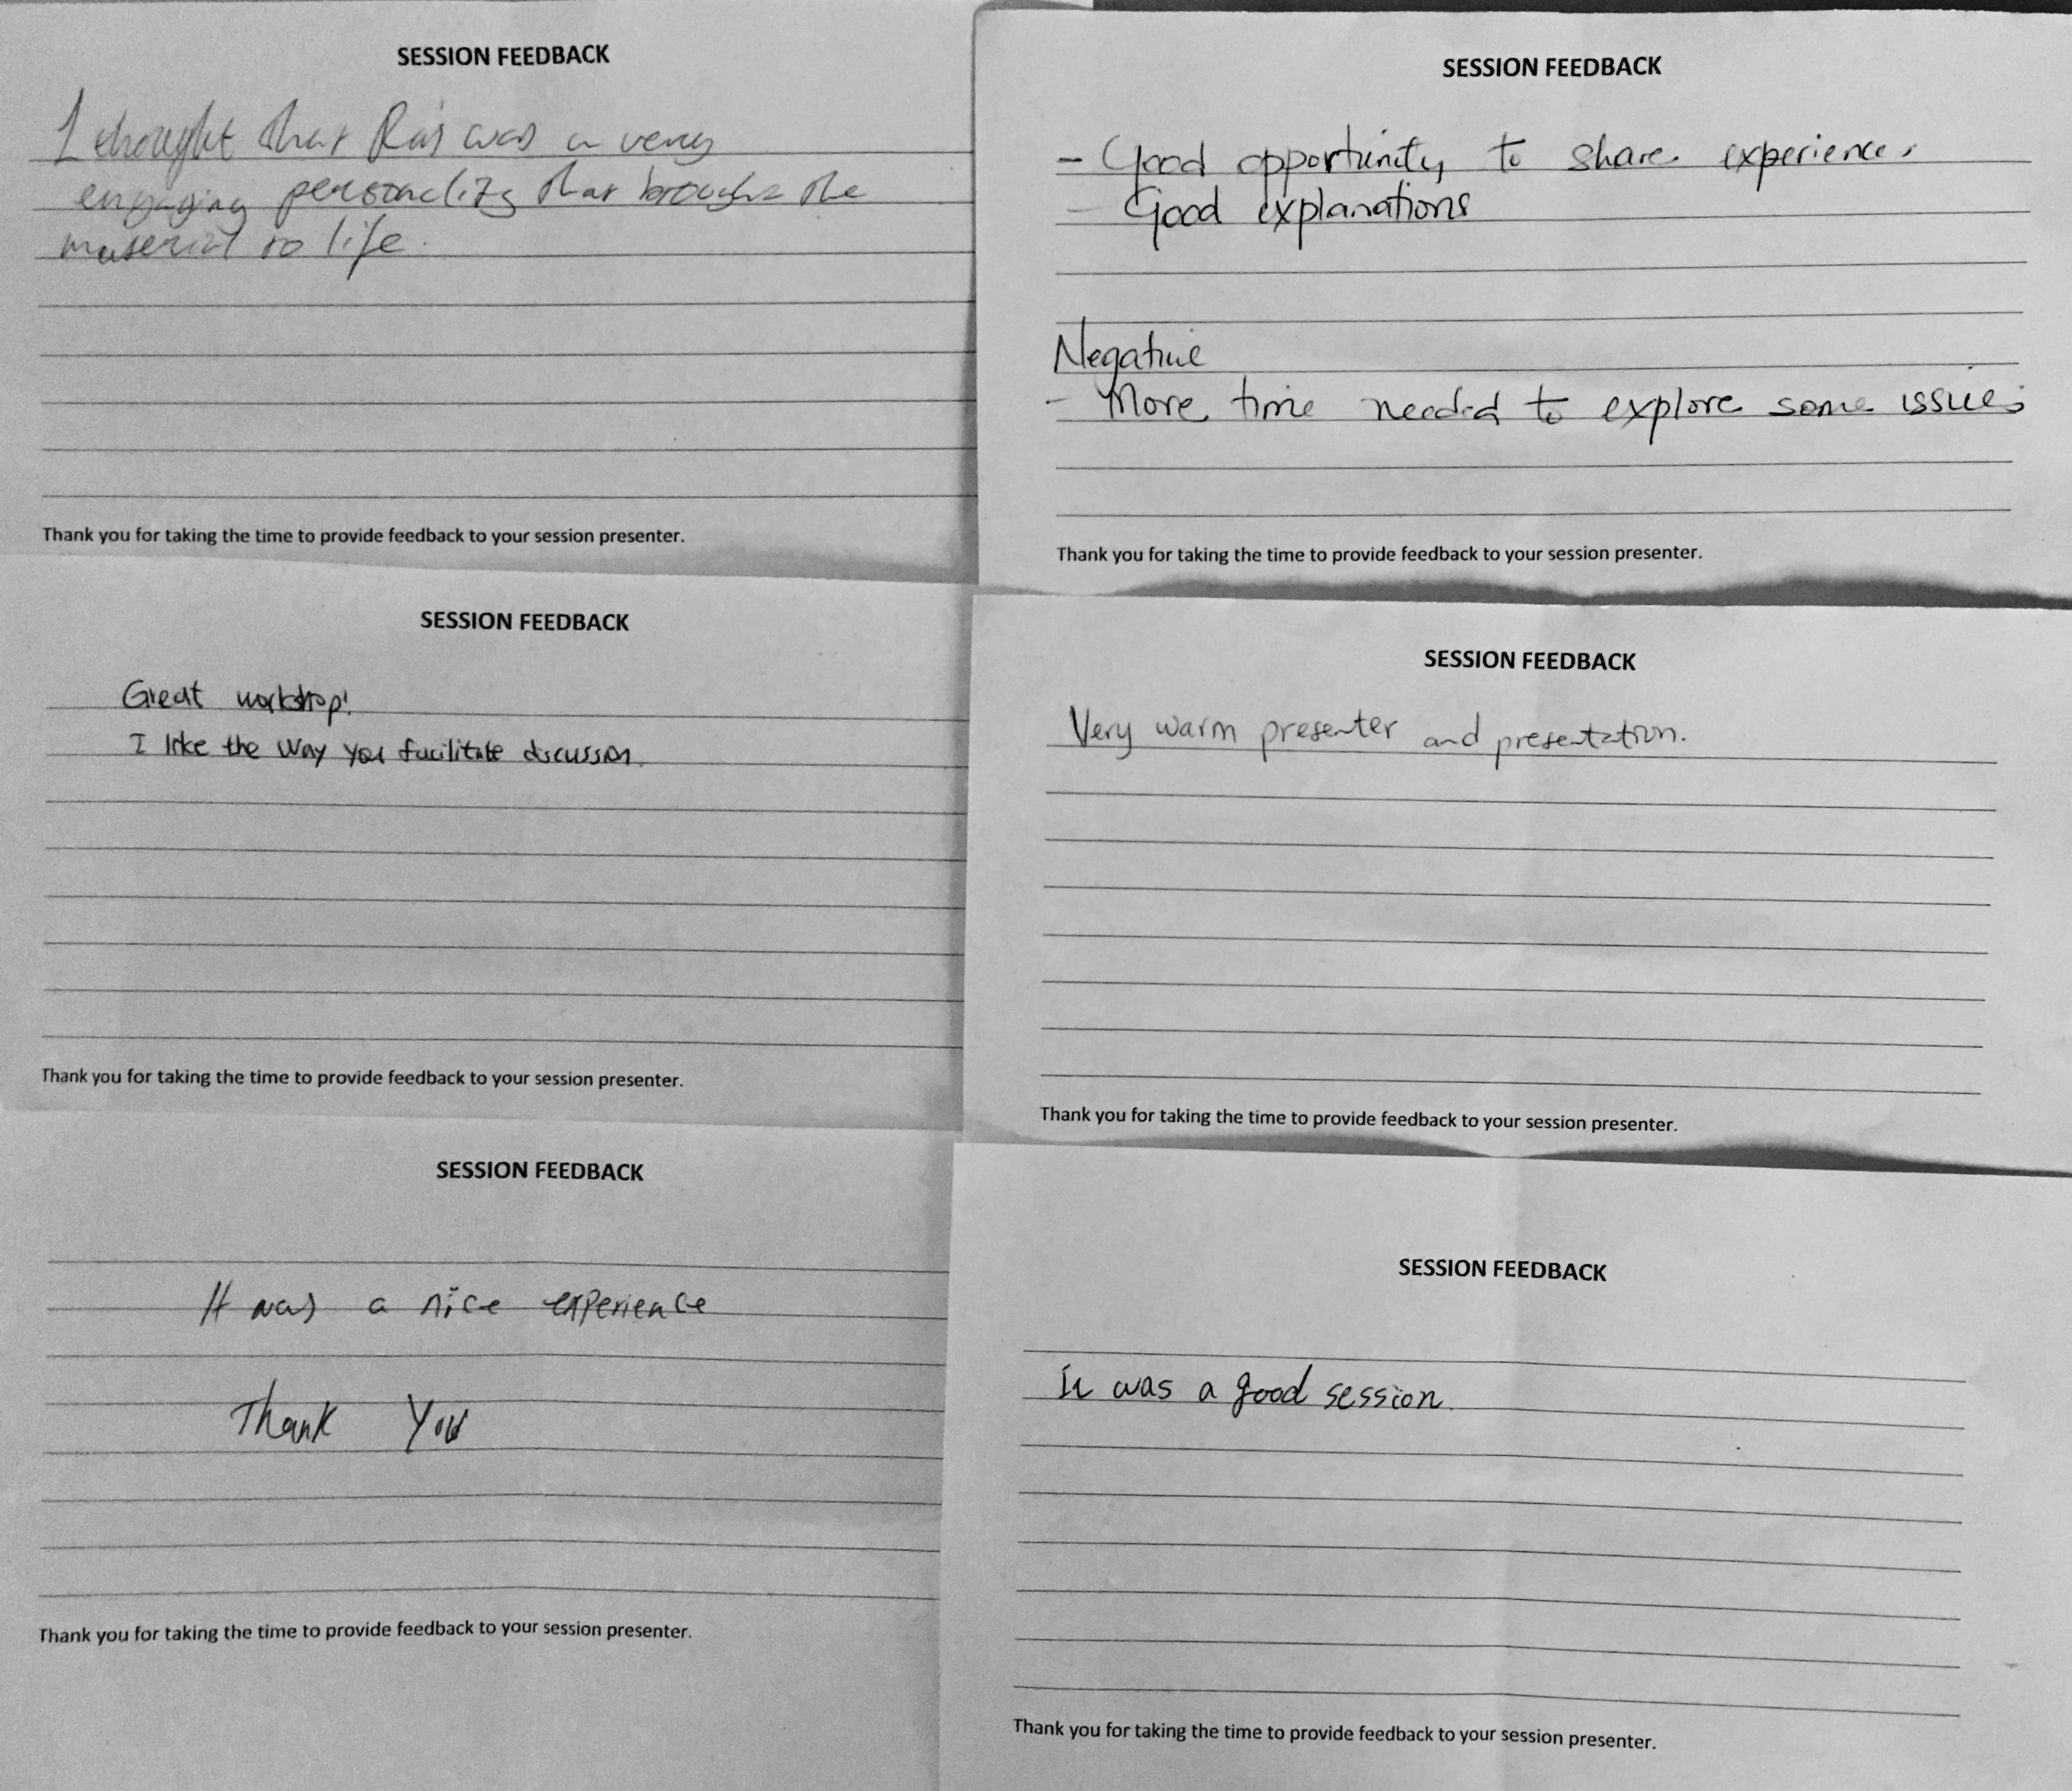 SESSION FEEDBACK
I thought that Raj was a very
engaging personality that brought the
material to life.
Thank you for taking the time to provide feedback to your session presenter.
SESSION FEEDBACK
- Good opportunity to share experience.
- Good explanations
Negative
- More time needed to explore some issues
Thank you for taking the time to provide feedback to your session presenter.
SESSION FEEDBACK
Great workshop!
I like the way you facilitate discussion.
Thank you for taking the time to provide feedback to your session presenter.
SESSION FEEDBACK
Very warm presenter and presentation.
Thank you for taking the time to provide feedback to your session presenter.
SESSION FEEDBACK
It was a nice experience
Thank You
Thank you for taking the time to provide feedback to your session presenter.
SESSION FEEDBACK
It was a good session.
Thank you for taking the time to provide feedback to your session presenter.